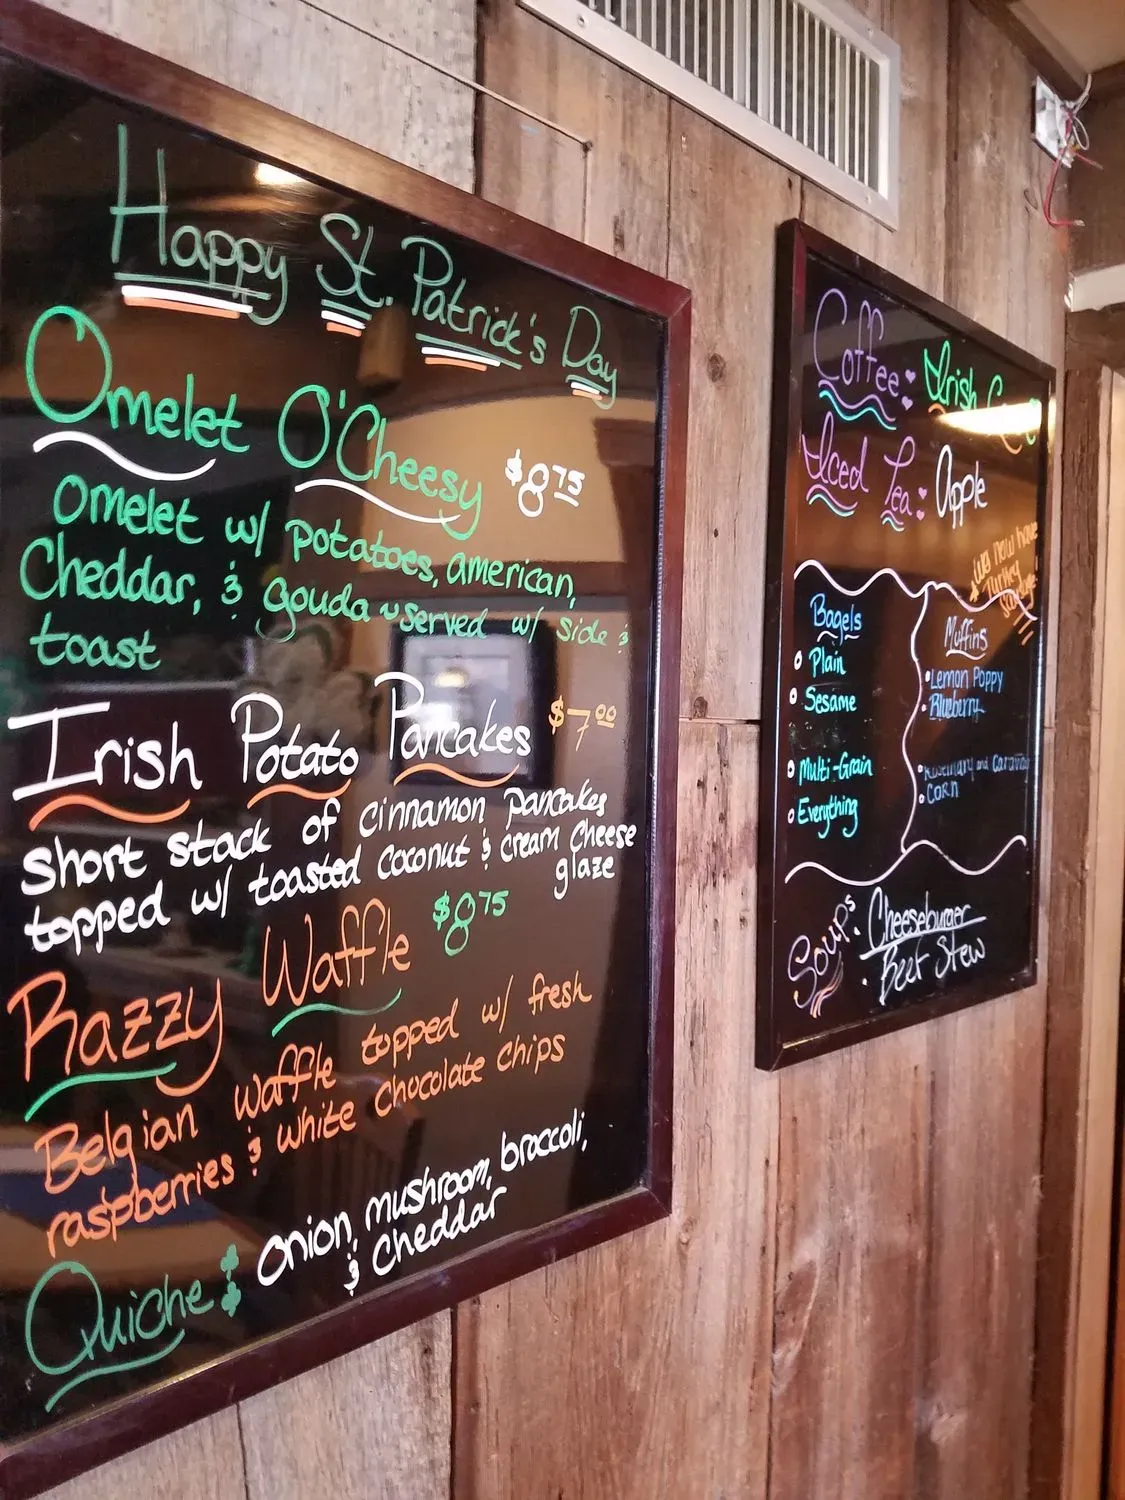 Happy St. Patrick's Day
Omelet O'Cheesy $8.75
Omelet w/ potatoes, american,
Cheddar, & gouda ~ served w/ side &
toast
Irish Potato Pancakes $7.00
short stack of cinnamon pancakes
topped w/ toasted coconut & cream cheese
glaze
Razzy Waffle $8.75
Belgian waffle topped w/ fresh
raspberries & white chocolate chips
Quiche: onion, mushroom, broccoli,
& cheddar
Coffee: Irish
Iced Tea: Apple
We now have
Turkey
Sausage!
Bagels
Plain
Sesame
Multi-Grain
Everything
Muffins
Lemon Poppy
Blueberry
Rosemary and
Corn
Soups: Cheeseburger
Beef Stew